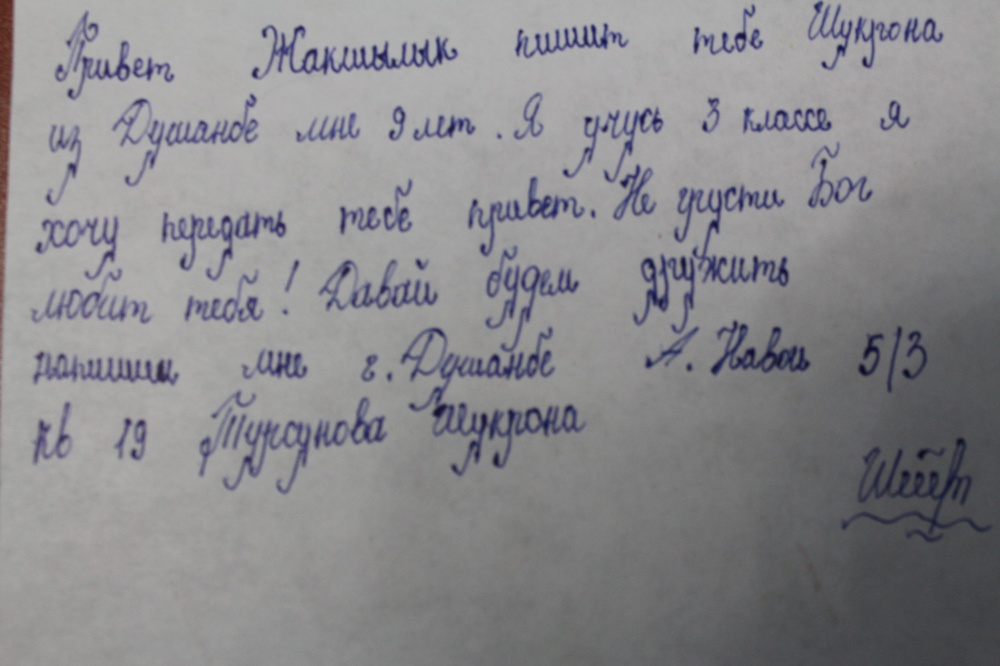 Привет Жакшылык пишит тебе Шукрона
из Душанбе мне 9 лет. Я учусь 3 классе я
хочу передать тебе привет. Не грусти Бог
любит тебя! Давай будем дружить
напиши мне г. Душанбе А. Навои 5/3
кв 19 Турсунова Шукрона